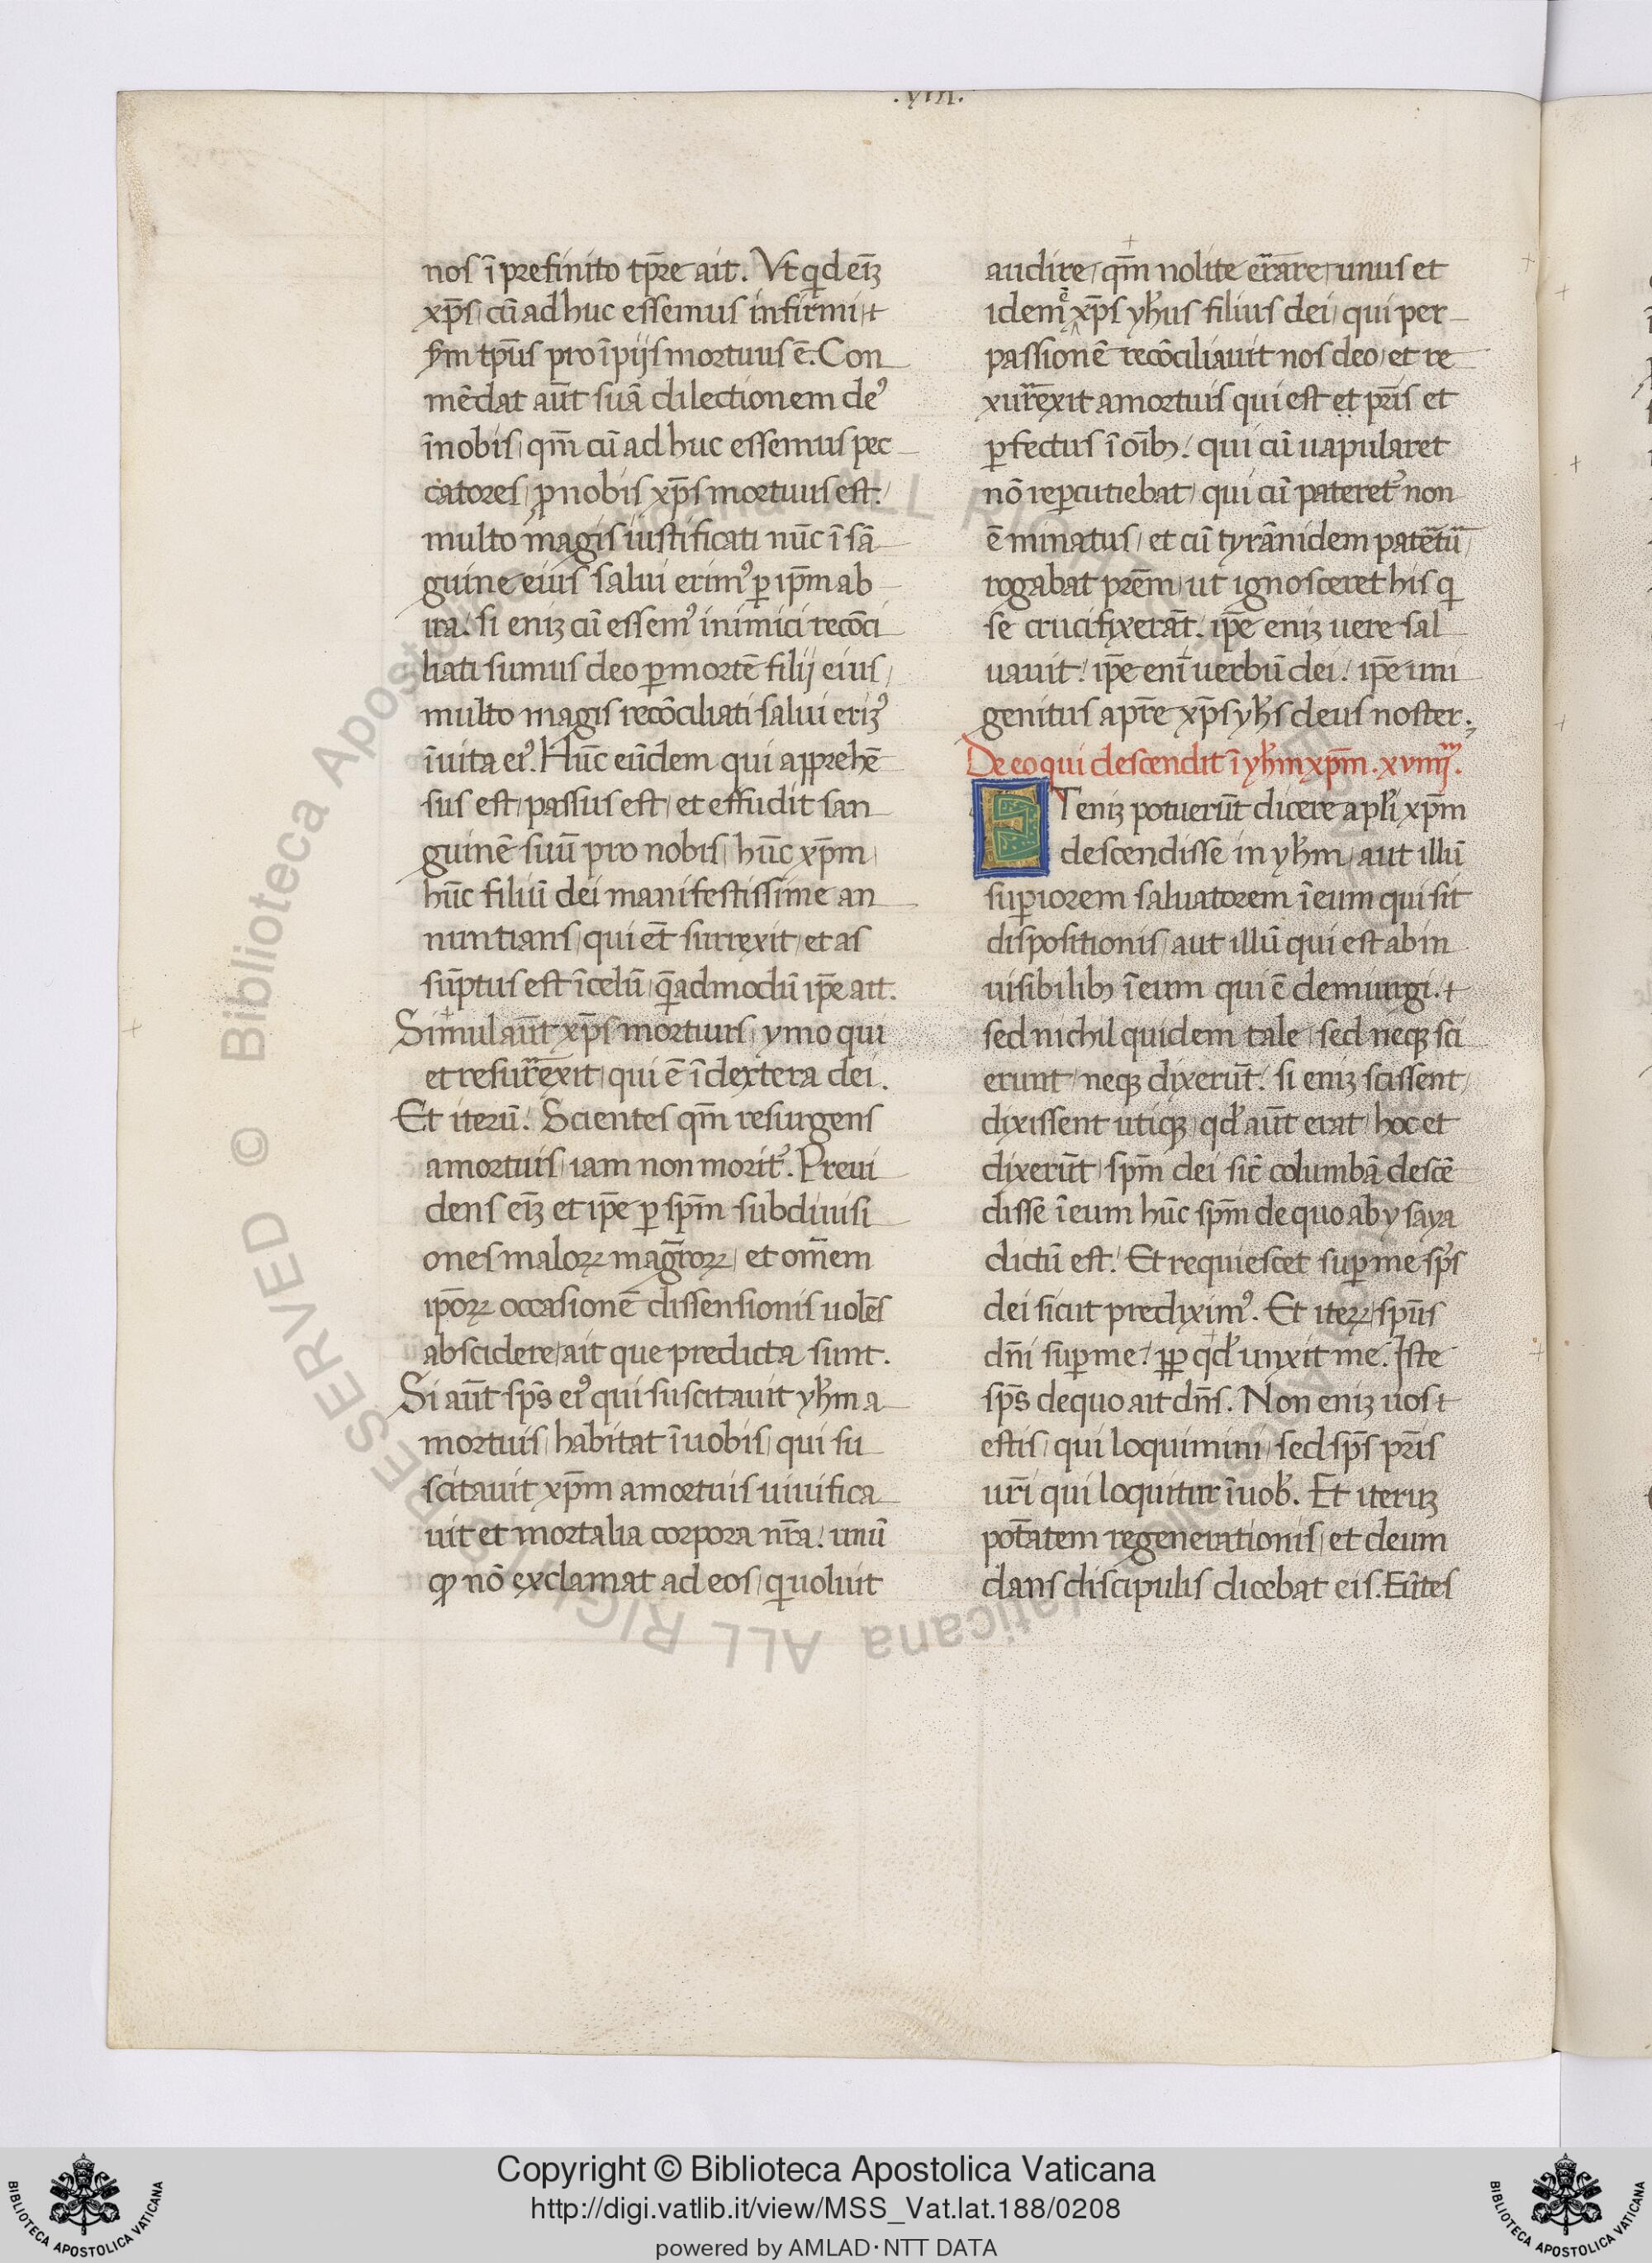 .XVII.
nos ī prefinito tp̄re ait. Vt qd eīz
xp̄s, cū ad huc essemus infirmi, t
sm̄ tp̄us pro īpijs mortuus ē. Con
mēdat aūt suā dilectionem de⁹
īnobis, qm̄ cū ad huc essemus pec
catores, ꝓ nobis xp̄s mortuus est.
multo magis iustificati nūc ī sā
guine eius salui erim⁹ ꝑ ip̄m ab
ira. si eniz cū essem⁹ inimici recōci
liati sumus deo ꝑ mortē filij eius,
multo magis recōciliati salui eriz⁹
īuita ei⁹. Hūc eūdem qui apprehē
sus est, passus est, et effudit san
guinē suū pro nobis, hūc xp̄m,
hūc filiū dei manifestissime an
nuntians, qui et̄ surrexit, et as
sūptus est ī celū, qēadmodū ip̄e ait.
Simul aūt xp̄s mortuus, ymo qui
et resur̄exit, qui ē ī dextera dei.
Et iterū. Scientes qm̄ resurgens
amortuis, iam non morit᷑. Previ
dens eīz et ip̄e ꝑ sp̄m subdiuisi
ones maloꝝ magr̄oꝝ, et om̄em
ip̄oꝝ occasionē dissensionis uolēs
abscidere, ait que predicta sunt.
Si aūt sp̄s ei⁹ qui suscitauit yh̄m a
mortuis, habitat ī uobis, qui su
scitauit xp̄m amortuis uiuifica
uit et mortalia corpora nr̄a. unū
qͦ nō exclamat ad eos, q uoluit
audire, qm̄ nolite er̄rare, unus et
idem ē xp̄s yh̄us filius dei, qui per
passionē recōciliauit nos deo, et re
xur̄rexit amortuis qui est et pr̄is et
ꝑfectus ī oīb3. qui cū uapularet
nō reꝑcutiebat, qui cū pateret᷑ non
ē minatus, et cū tyrānidem patēt᷑ū,
rogabat prēm, ut ignosceret his q
se crucifixerāt. ip̄e eniz uere sal
uauit. ip̄e enī uerbū dei. ip̄e uni
genitus apr̄e xp̄s yh̄s deus noster.
De eo qui descendit ī yh̄m xp̄m. xviiij.m
ET eniz potuerūt dicere apl̄i xp̄m
descendisse in yh̄m, aut illū
suꝑiorem saluatorem ī eum qui sit
dispositionis, aut illū qui est ab in
uisibilib3 ī eum qui ē demiurgi. t
sed nichil quidem tale, sed neqз sci
erunt, neqз dixerūt. si eniz scissent,
dixissent utiqз, qd̄ aūt erat, hoc et
dixerūt, sp̄m dei sic̄ columbā descē
disse ī eum hūc sp̄m de quo ab ysaya
dictū est. Et requiescet suꝑ me sp̄s
dei sicut prediximꝰ. Et iteꝝ, sp̄us
dn̄i suꝑ me. ꝓꝑ qd̄ unxit me. Iste
sp̄s de quo ait dn̄s. Non eniz uos t
estis, qui loquimini, sed sp̄s pr̄is
ur̄i qui loquitur ī uob̄. Et iteruz
pot̄atem regenerationis, et deum
dans discipulis dicebat eis. Eūtes
© Biblioteca Apostolica Vaticana ALL RIGHTS RESERVED
Copyright © Biblioteca Apostolica Vaticana
http://digi.vatlib.it/view/MSS_Vat.lat.188/0208
powered by AMLAD·NTT DATA
BIBLIOTECA APOSTOLICA VATICANA
BIBLIOTECA APOSTOLICA VATICANA